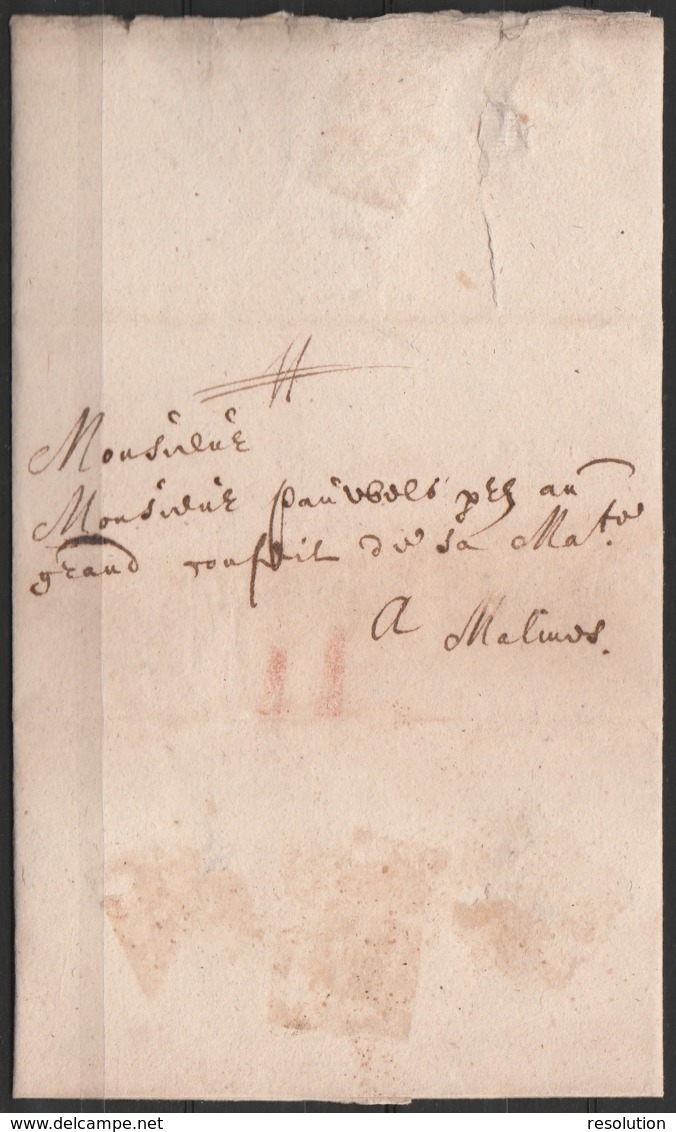 Monsieur
Monsieur pauwels pr au
grand conseil de sa Mate.
A Malines.
II
© delcampe.net
resolution